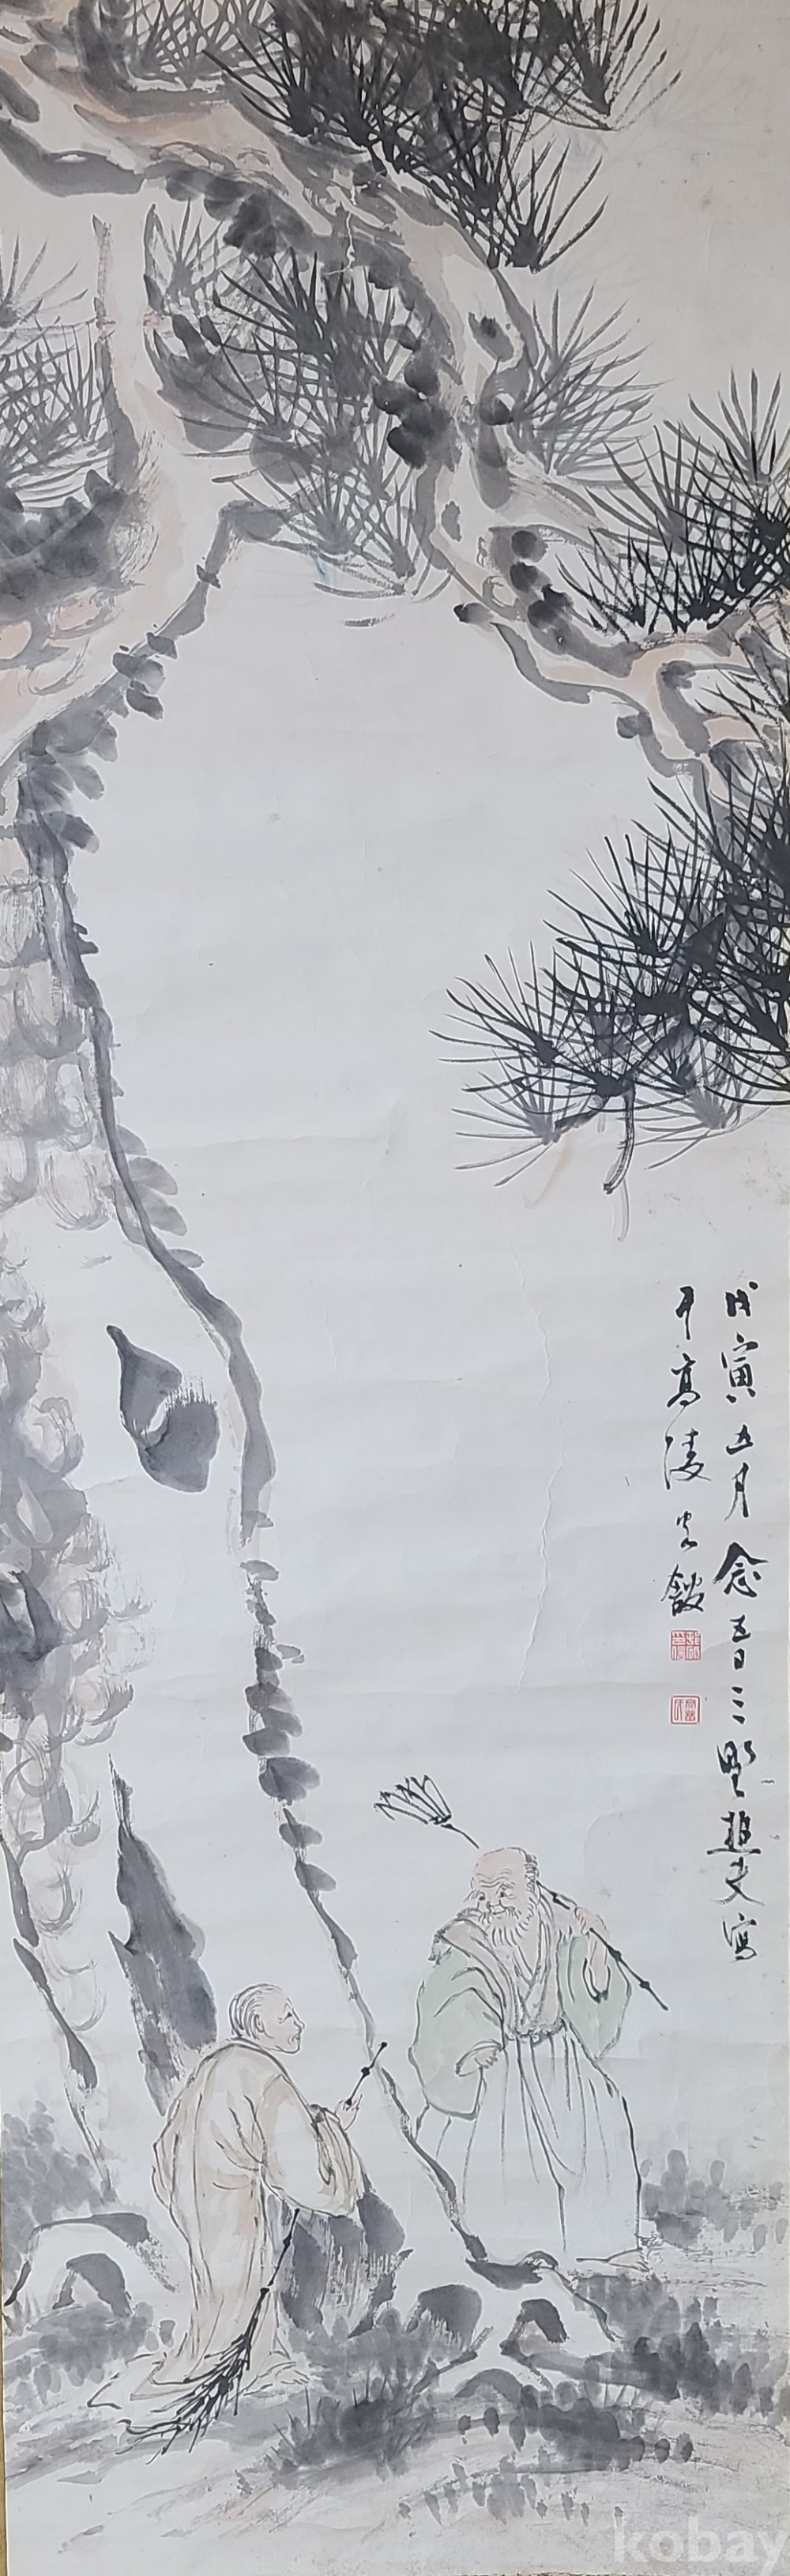 戊寅五月念五日三野趙夫寫
于高陵客館
kobay